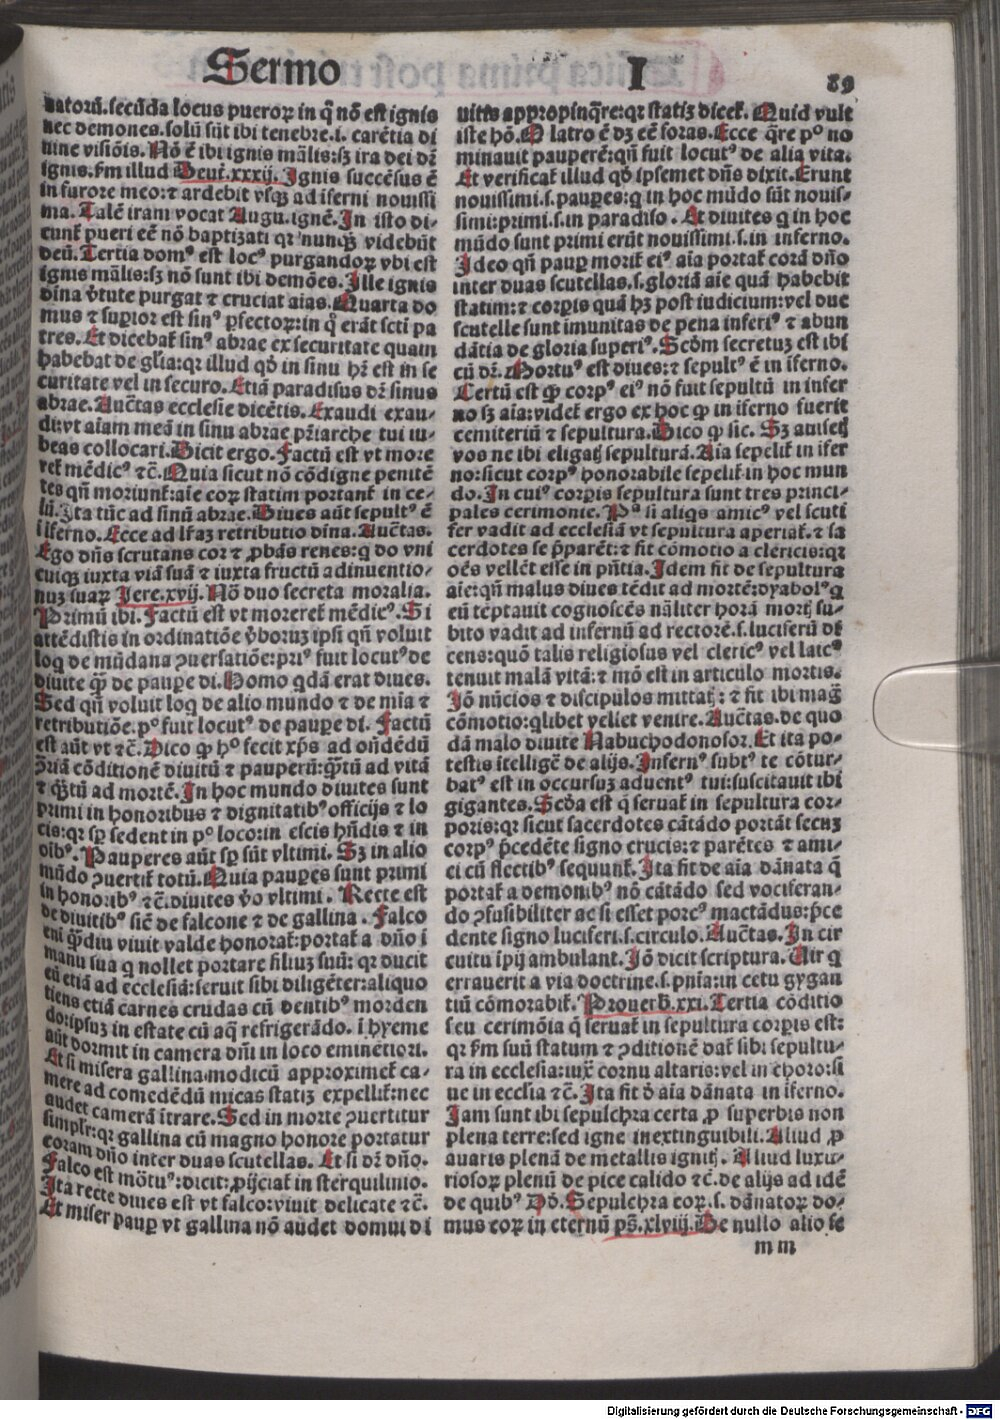 Sermo I 89
natorũ. secũda locus pueroꝝ in q̃ nõ est ignis
nec demones. solũ sũt ibi tenebre. i. carẽtia di
uine visiõis. Nõ ẽ ibi ignis mãlis: sꝫ ira dei dr̃
ignis. ẜm illud Deut̃. xxxij. Ignis succẽsus ẽ
in furore meo: ⁊ ardebit vsqꝫ ad ĩferni nouissi
ma. Talẽ iram vocat Augu. ignẽ. In isto di
cunt̃ pueri eẽ nõ baptizati qꝛ nunq̃ꝫ videbũt
deũ. Tertia domꝰ est locꝰ purgandoꝝ vbi est
ignis mãlis: sꝫ nõ sunt ibi demões. Ille ignis
diña v̾tute purgat ⁊ cruciat aĩas. Quarta do
mus ⁊ supior est sinꝰ ꝑfectoꝝ: in q̃ erãt scti pa
tres. Et dicebat̃ sinꝰ abrae ex securitate quam
habebat de glĩa: qꝛ illud qð in sinu hr̃ est in se
curitate vel in securo. Etiã paradisus dr̃ sinus
abrae. Auc̃tas ecclesie dicẽtis. Exaudi exau-
di: vt aĩam meã in sinu abrae pr̃iarche tui iu-
beas collocari. Dicit ergo. Factũ est vt more
ret̃ mẽdicꝰ ⁊c̃. Quia sicut nõ cõdigne penitẽ
tes qñ moriunt̃: aĩe coꝝ statim portant̃ in ce-
lũ. Ita tũc ad sinũ abrae. Diues aũt sepultꝰ ẽ
i ĩferno. Ecce ad lr̃az retributio diña. Auc̃tas.
Ego dñs scrutans cor ⁊ ꝓbãs renes: q do vni
cuiqꝫ iuxta viã suã ⁊ iuxta fructũ adinuentio-
nuꝫ suaꝝ Jere. xvij. Nõ duo secreta moralia.
Primũ ibi. Factũ est vt moreret̃ mẽdicꝰ. Si
attẽdistis in ordinatiõe v̾boruꝫ ipsi qñ voluit
loq̃ de mũdana ꝯuersatiõe: priꝰ fuit locutꝰ de
diuite q̃ꝫ de paupe di. Homo q̃dã erat diues.
Sed qñ voluit loq̃ de alio mundo ⁊ de mĩa ⁊
retributiõe. pꝰ fuit locutꝰ de paupe di. Factũ
est aũt vt ⁊c̃. Dico ꝙ hꝰ fecit xp̃s ad oñdẽdũ
ꝯ̃riã cõditionẽ diuitũ ⁊ pauperũ: q̃tũ ad vitã
⁊ q̃ꝫtũ ad mortẽ. In hoc mundo diuites sunt
primi in honoribus ⁊ dignitatibꝰ officijs ⁊ lo
cis: qꝛ sp̃ sedent in pꝰ loco: in escis hñdis ⁊ in
oĩbꝰ. Pauperes aũt sp̃ sũt vltimi. Sꝫ in alio
mũdo ꝯuertit̃ totũ. Quia paupes sunt primi
in honoribꝰ ⁊c̃. diuites v̾o vltimi. Recte est
de diuitibꝰ sic̃ de falcone ⁊ de gallina. Falco
eni q̃ꝫdiu viuit valde honorat̃: portat̃ a dño ĩ
manu sua q nollet portare filiuꝫ suũ: qꝛ ducit
eũ etiã ad ecclesiã: seruit sibi diligẽter: aliquo
tiens etiã carnes crudas cũ dentibꝰ morden
do: ipsuꝫ in estate cũ aq̃ refrigerãdo. ĩ hyeme
aũt dormit in camera dñi in loco eminẽtiori.
Et si misera gallina modicũ approximet̃ ca-
mere ad comedẽdũ micas statiꝫ expellit̃: nec
audet camerã ĩtrare. Sed in morte ꝯuertitur
simplr̃: qꝛ gallina cũ magno honore portatur
coram dño inter duas scutellas. Et si dr̃ dño.
Falco est mõtuꝰ: dicit: ꝓijciat̃ in sterquilinio.
Ita recte diues est vt falco: viuit delicate ⁊c̃.
Et miser paup vt gallina nõ audet domui di
uitis appropinq̃re: qꝛ statiꝫ dicet̃. Quid vult
iste hõ. O latro ẽ dꝫ eẽ foras. Ecce q̃re pꝰ no
minauit pauperẽ: qñ fuit locutꝰ de alia vita.
Et verificat̃ illud qð ipsemet dñs dixit. Erunt
nouissimi. s. paupes: q in hoc mũdo sũt nouis-
simi: primi. s. in paradiso. Et diuites q in hoc
mũdo sunt primi erũt nouissimi. s. in inferno.
Ideo qñ paup morit̃ eiꝰ aĩa portat̃ corã dño
inter duas scutellas. s. gloriã aĩe quã habebit
statim: ⁊ corpis quã hꝫ post iudicium: vel due
scutelle sunt imunitas de pena inferiꝰ ⁊ abun
dãtia de gloria superiꝰ. Scðm secretuꝫ est ibi
cũ dr̃. Mortuꝰ est diues: ⁊ sepultꝰ ẽ in ĩferno.
Certũ est ꝙ corpꝰ eiꝰ nõ fuit sepultũ in infer
no sꝫ aĩa: videt̃ ergo ex hoc ꝙ in ĩferno fuerit
cemiteriũ ⁊ sepultura. Dico ꝙ sic. Sꝫ auisetꝭ
vos ne ibi eligatꝭ sepulturã. Aĩa sepelit̃ in ĩfer
no: sicut corpꝰ honorabile sepelit̃ in hoc mun
do. In cuiꝰ corpis sepultura sunt tres princi-
pales cerimonie. Pª si aliqs amicꝰ vel scuti
fer vadit ad ecclesiã vt sepultura aperiat̃. ⁊ sa
cerdotes se p̃parẽt: ⁊ fit cõmotio a clericis: qꝛ
oẽs vellẽt esse in pñtia. Idem fit de sepultura
aĩe: qñ malus diues tẽdit ad mortẽ: dyabolꝰ q
eũ tẽptauit cognoscẽs nãliter horã mortꝭ su-
bito vadit ad infernũ ad rectorẽ. s. luciferũ di
cens: quõ talis religiosus vel clericꝰ vel laicꝰ
tenuit malã vitã: ⁊ mõ est in articulo mortis.
Iõ nũcios ⁊ discipulos mittatꝭ: ⁊ fit ibi mag̃
cõmotio: qlibet vellet venire. Auc̃tas. de quo
dã malo diuite Nabuchodonosor. Et ita po-
testis ĩtelligẽ de alijs. Infernꝰ subtꝰ te cõtur-
batꝰ est in occursuꝫ aduentꝰ tui: suscitauit ibi
gigantes. Scða est q̃ seruat̃ in sepultura cor-
poris: qꝛ sicut sacerdotes cãtãdo portãt secuꝫ
corpꝰ p̃cedẽte signo crucis: ⁊ parẽtes ⁊ ami-
ci cũ flectibꝰ sequunt̃. Ita fit de aĩa dãnata q̃
portat̃ a demonibꝰ nõ cãtãdo sed vociferan-
do ꝯfusibiliter ac si esset porcꝰ mactãdus: p̃ce
dente signo luciferi. s. circulo. Auc̃tas. In cir
cuitu ĩpij ambulant. Iõ dicit scriptura. Uir q
errauerit a via doctrine. s. pñĩa: in cetu gygan
tiũ cõmorabit̃. Prouerb̃. xxi. Tertia cõditio
seu cerimõia q̃ seruat̃ in sepultura corpis est:
qꝛ ẜm suũ statum ⁊ ꝯditionẽ dat̃ sibi sepultu-
ra in ecclesia: iux̃ cornu altaris: vel in choro: si
ue in ecclĩa ⁊c̃. Ita fit ð aĩa dãnata in ĩferno.
Iam sunt ibi sepulchra certa ꝓ superbis non
plena terre: sed igne inextinguibili. Aliud ꝓ
auaris plenã de metallis ignitꝭ. Aliud luxu-
riosoꝝ plenũ de pice calido ⁊c̃. de alijs ad idẽ
de quibꝰ Dð. Sepulchra coꝝ. s. dãnatoꝝ do-
mus coꝝ in eternũ ps̃. xlviij. De nullo alio se
m m
Digitalisierung gefördert durch die Deutsche Forschungsgemeinschaft - DFG